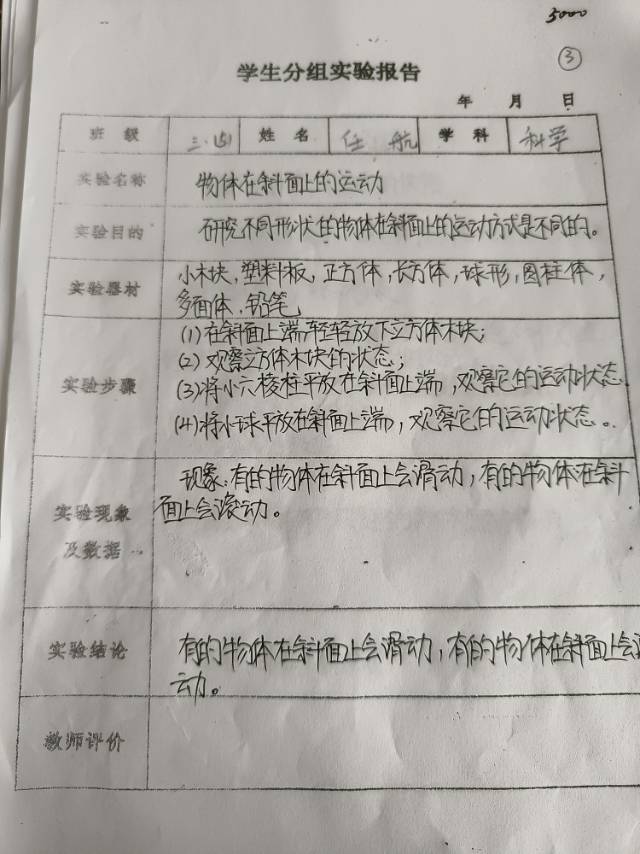 5000
③
学生分组实验报告
年 月 日
班 级 三.(5) 姓 名 任 航 学 科 科学
实验名称 物体在斜面上的运动
实验目的 研究不同形状的物体在斜面上的运动方式是不同的。
实验器材 小木块,塑料板,正方体,长方体,球形,圆柱体,
多面体,铅笔
实验步骤 (1)在斜面上端,轻轻放下立方体木块;
(2)观察立方体木块的状态;
(3)将小六棱柱平放在斜面上端,观察它的运动状态
(4)将小球平放在斜面上端,观察它的运动状态。
实验现象 现象:有的物体在斜面上会滑动,有的物体在斜
面上会滚动。
及数据
实验结论 有的物体在斜面上会滑动,有的物体在斜面上会
动。
教师评价